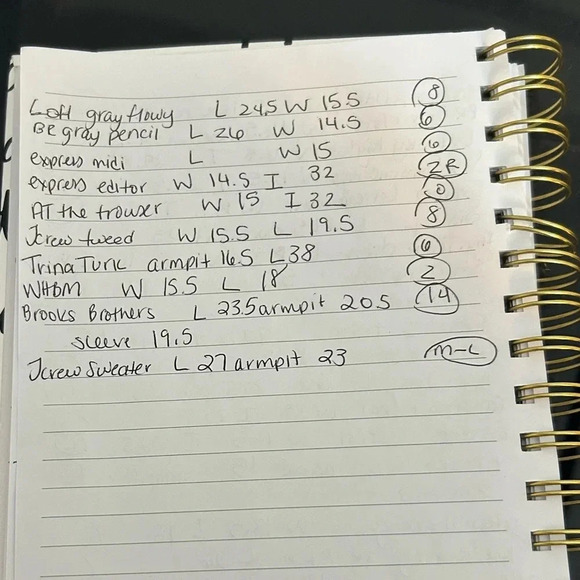 Loft gray flowy L 24.5 W 15.5 8
BR gray pencil L 26 W 14.5 6
express midi L W 15 6
express editor W 14.5 I 32 2R
AT the trouser W 15 I 32
Jcrew tweed W 15.5 L 19.5 8
Trina Turk armpit 16.5 L 38 6
WHBM W 15.5 L 18 2
Brooks Brothers L 23.5 armpit 20.5 14
sleeve 19.5
Jcrew Sweater L 27 armpit 23 M-L